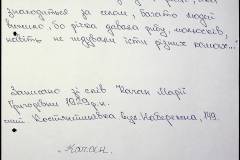 знаходиться за селом, багато людей
вижило, бо річка давала рибу, молюсків,
навіть не гидували їсти різних комах...
Записано зі слів Каган Марії
Григорівни 1929 р.н.
Костянтинівка вул. Набережна, 149.